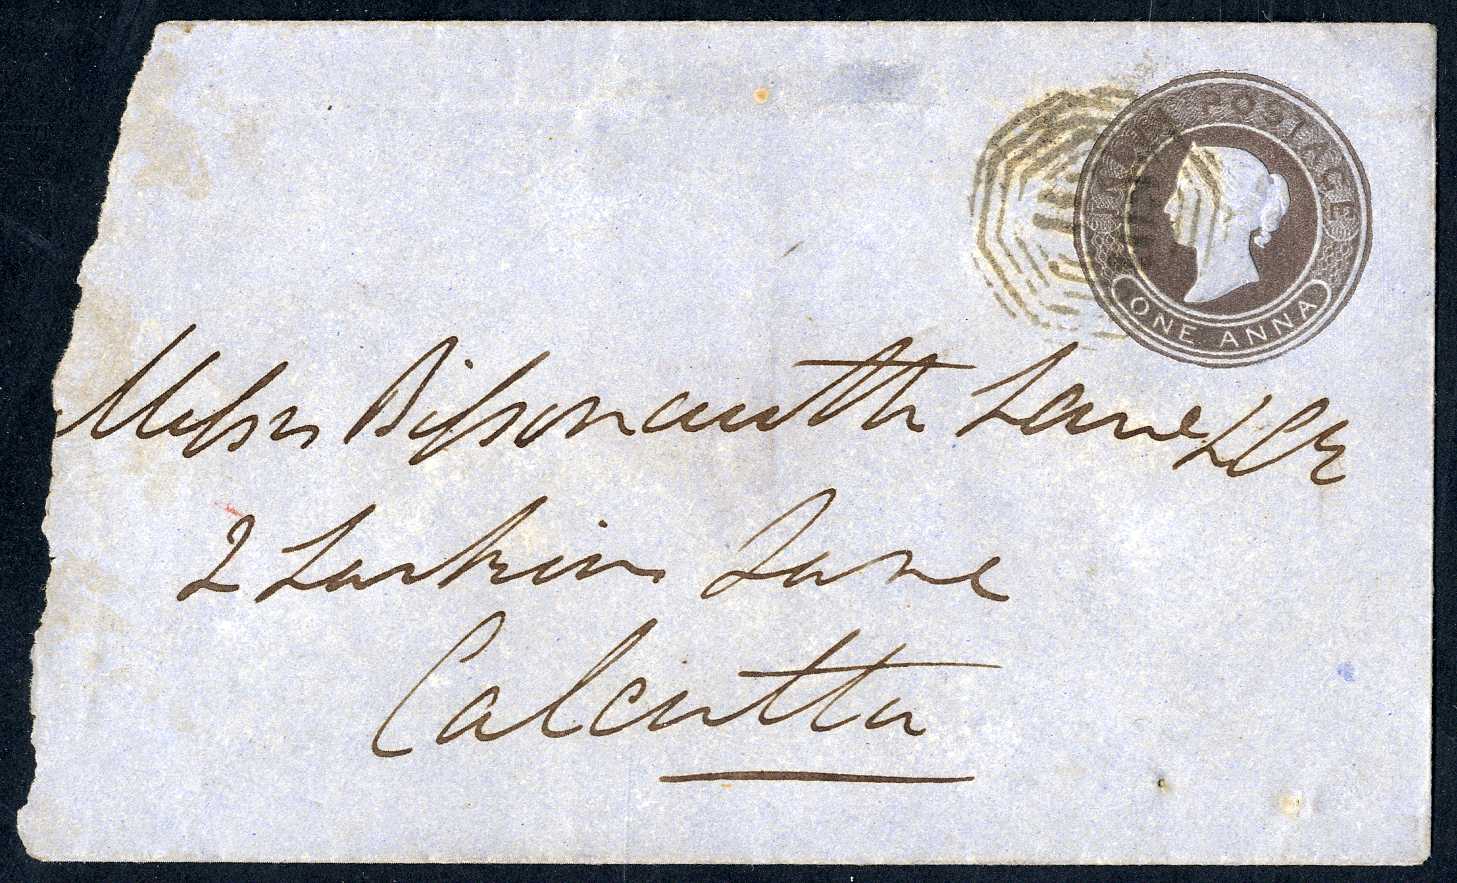 INDIA POSTAGE
ONE ANNA
Messrs Bissonauth Law & Co
2 Larkins Lane
Calcutta